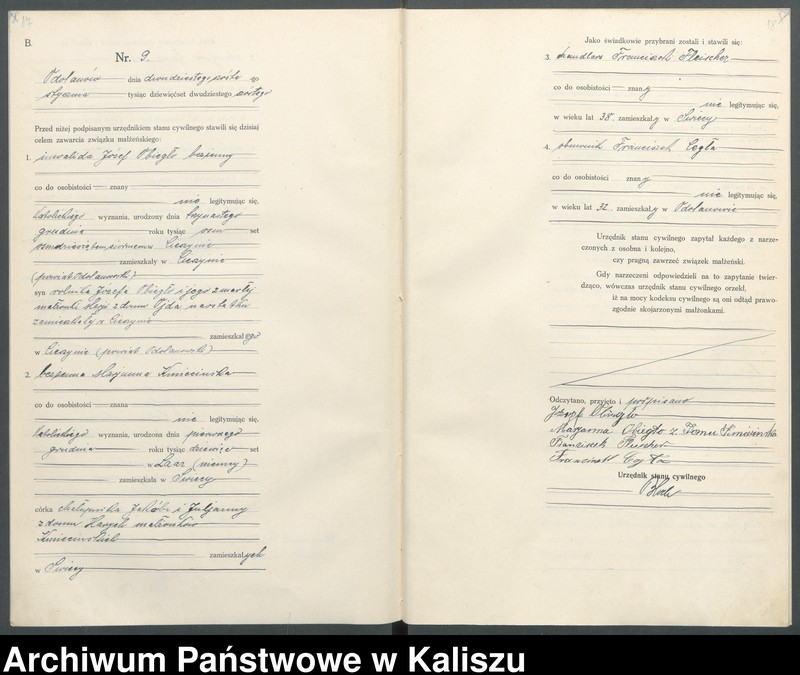 B.
Nr. 9.
Odolanów dnia dwudziestego szóstego
stycznia tysiąc dziewięćset dwudziestego szóstego
Przed niżej podpisanym urzędnikiem stanu cywilnego stawili się dzisiaj
celem zawarcia związku małżeńskiego:
1. inwalida Józef Obiegło bezżenny
co do osobistości znany
nie legitymując się,
katolickiego wyznania, urodzony dnia
grudnia roku tysiąc osm set
osmdziesiątem siódmem w
zamieszkały w
(powiat Odolanowski)
syn rolnika Józefa Obiegło i jego zmarłej
małżonki z domu Ojda na ostatku
zamieszkałej w
zamieszkałego
w (powiat Odolanowski)
2. bezżenna Marjanna
co do osobistości znana
nie legitymując się,
katolickiego wyznania, urodzona dnia pierwszego
grudnia roku tysiąc dziewięć set
w Laar (niemcy)
zamieszkała w Świecy
córka chałupnika Jakóba i Juljanny
z domu małżonków
zamieszkałych
w Świecy
Jako świadkowie przybrani zostali i stawili się:
3. handlarz Franciszek Fleischer
co do osobistości znany
nie legitymując się,
w wieku lat 38 zamieszkały w Świecy
4. Franciszek Cegła
co do osobistości znany
nie legitymując się,
w wieku lat 32 zamieszkały w Odolanowie
Urzędnik stanu cywilnego zapytał każdego z narze-
czonych z osobna i kolejno,
czy pragną zawrzeć związek małżeński.
Gdy narzeczeni odpowiedzieli na to zapytanie twier-
dząco, wówczas urzędnik stanu cywilnego orzekł,
iż na mocy kodeksu cywilnego są oni odtąd prawo-
zgodnie skojarzonymi małżonkami.
Odczytano, przyjęto i podpisano
Józef Obiegło
Marjanna Obiegło z domu
Franciszek Fleischer
Franciszek Cegła
Urzędnik stanu cywilnego
Archiwum Państwowe w Kaliszu